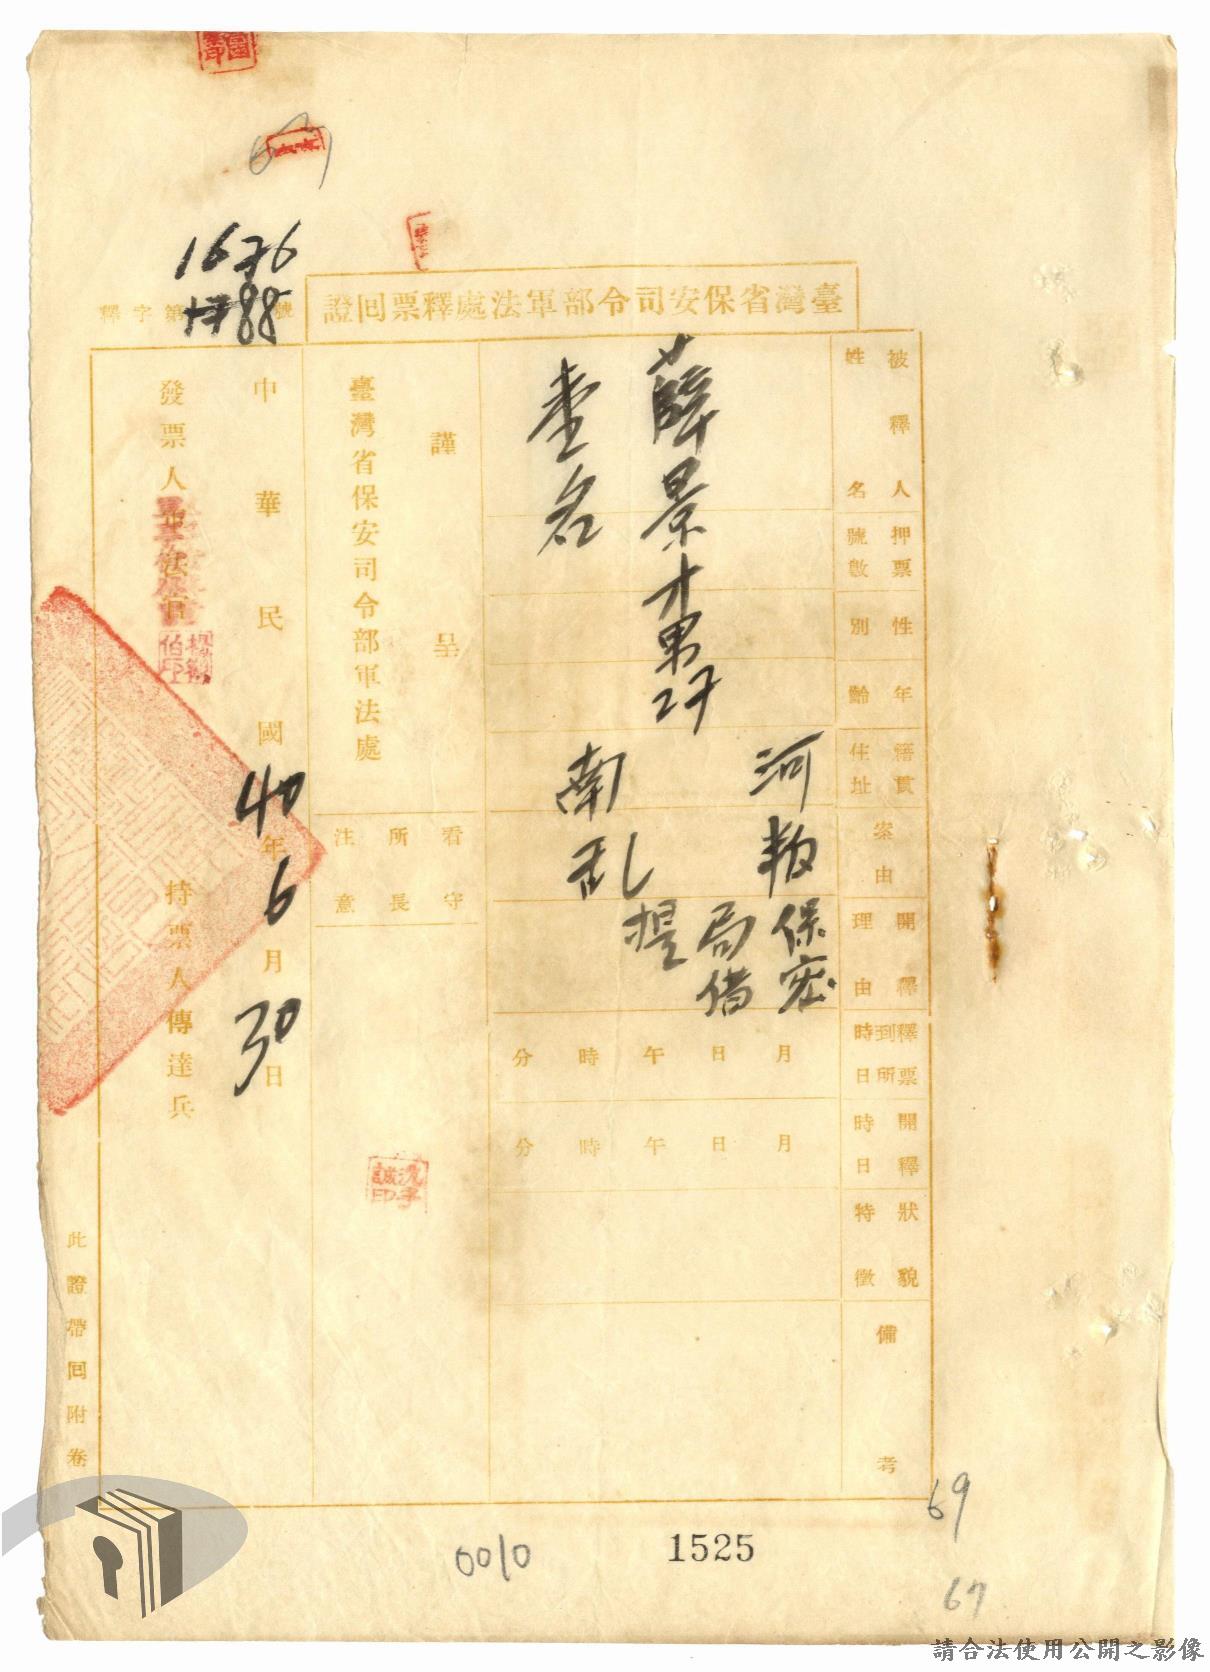 臺灣省保安司令部軍法處釋票回證
釋字第號
1676
被釋人姓名
薛景才
壹名
押票號數
性別
男
年齡
27
籍貫住址
河南
案由
叛乱
開釋理由
保密局借提
釋票到所時日
月日午時分
開釋時日
月日午時分
狀貌特徵
備考
謹呈
臺灣省保安司令部軍法處
看守所長注意
沈孚誠印
中華民國40年6月30日
發票人軍法官
持票人傳達兵
此證帶回附卷
69
0010
1525
67
請合法使用公開之影像